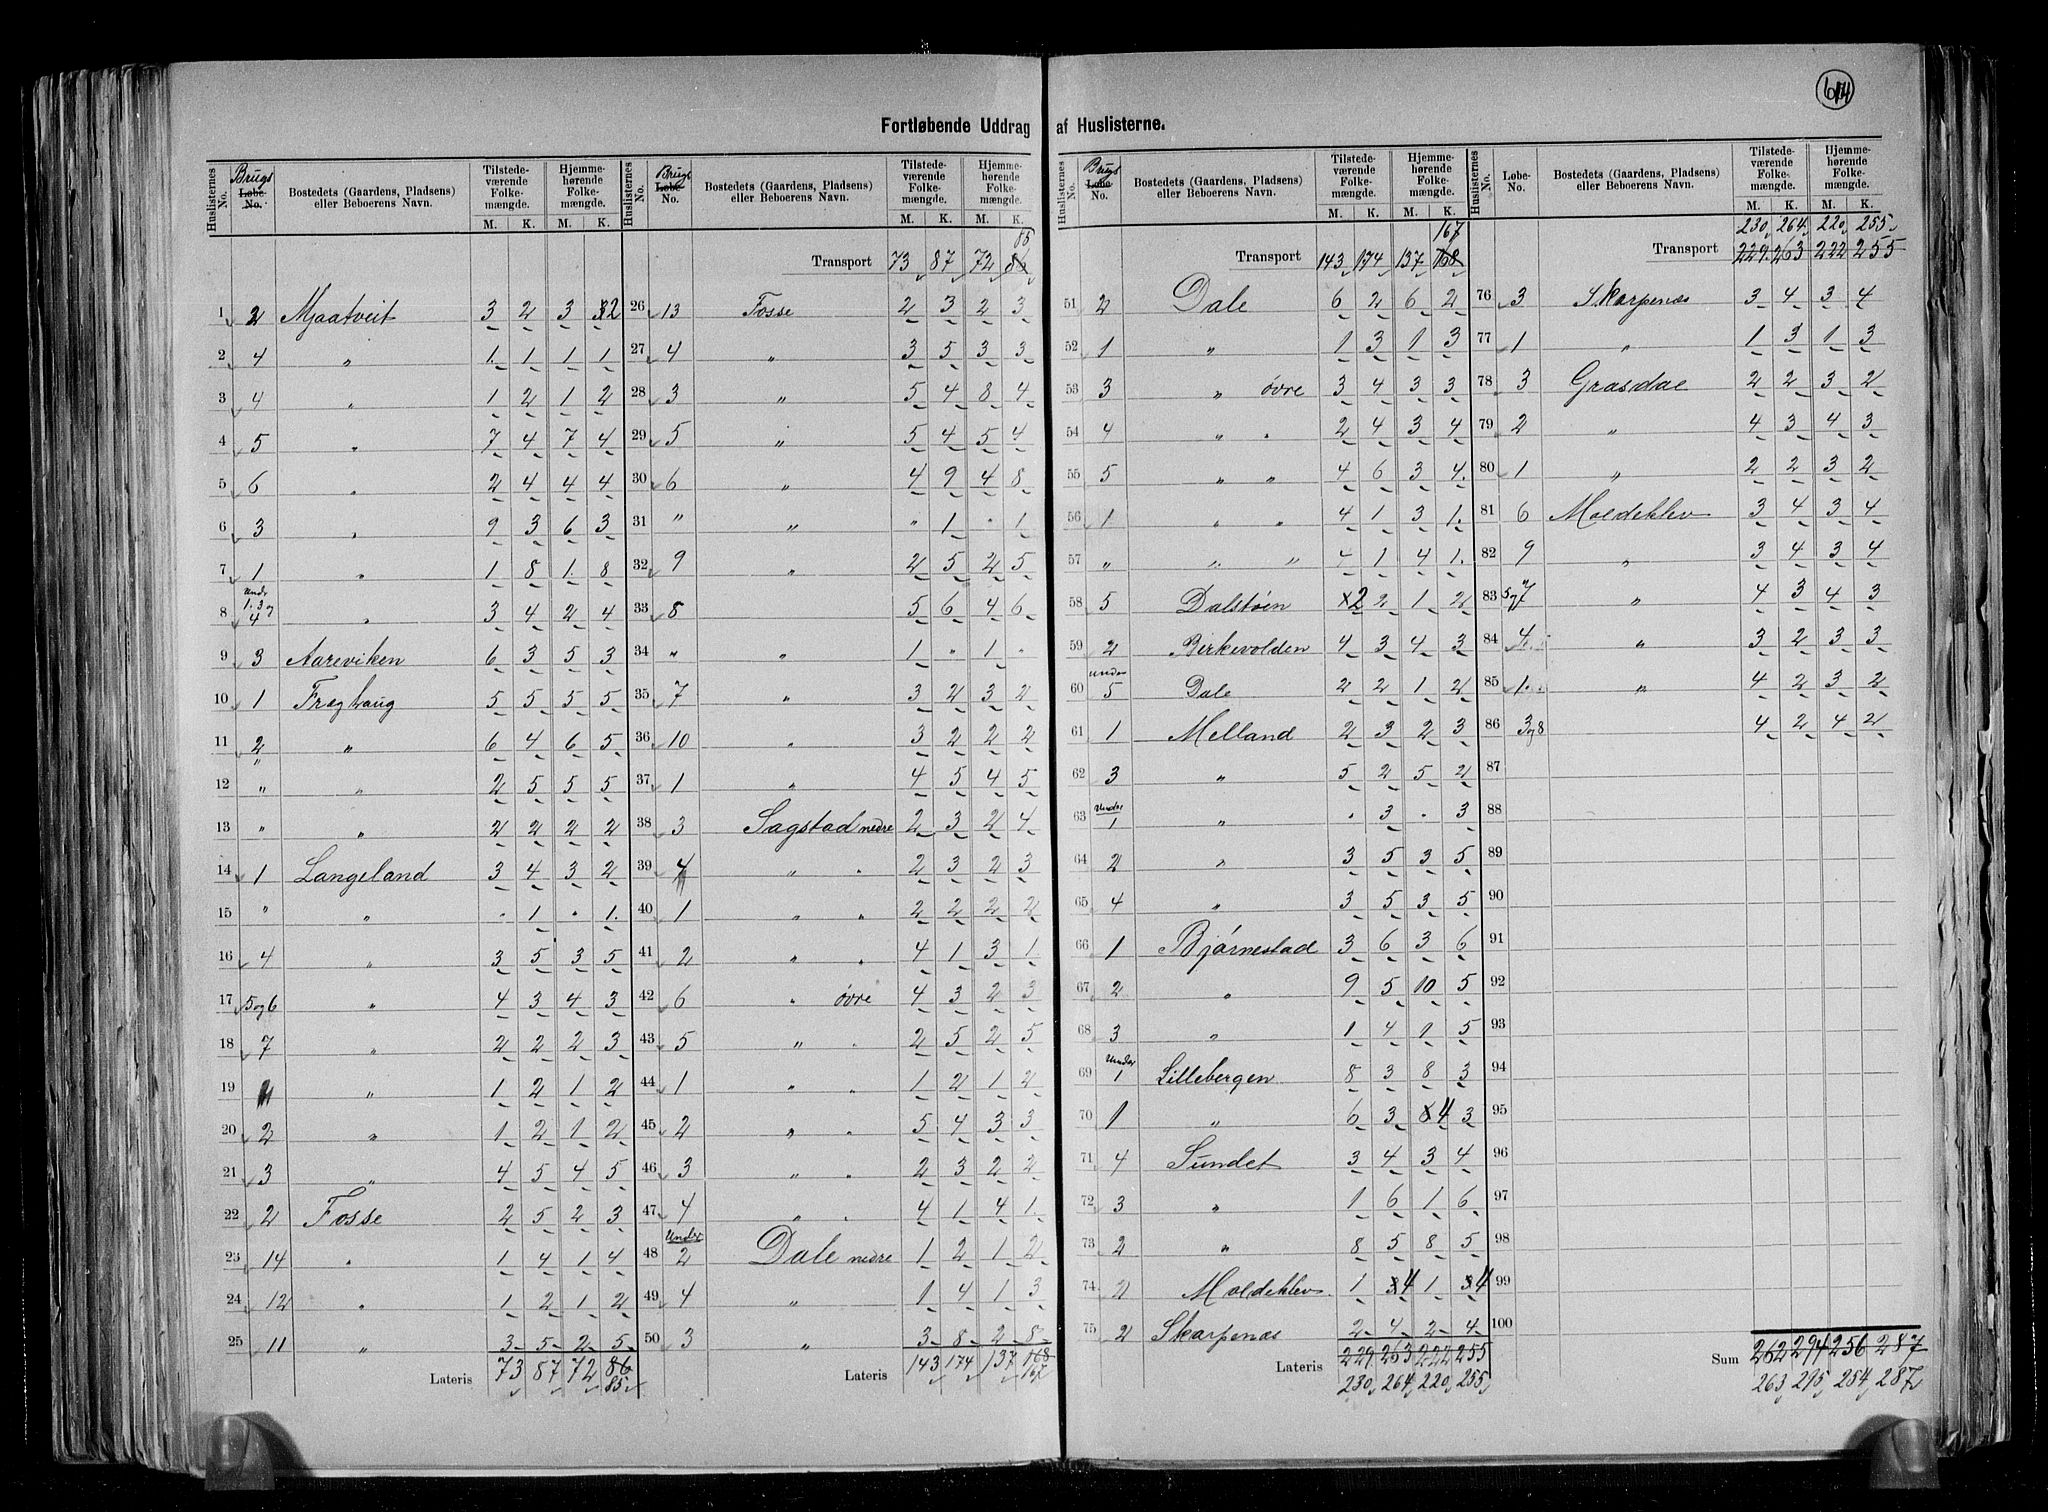 614
Fortløbende Uddrag af Huslisterne.
Huslisternes No. Brugs Løbe-No. Bostedets (Gaardens, Pladsens) eller Beboerens Navn. Tilstedeværende Folkemængde. M. K. Hjemmehørende Folkemængde. M. K.
1 2 Mjaatveit 3 2 3 2
2 4 " 1 1 1 1
3 4 " 1 2 1 2
4 5 " 7 4 7 4
5 6 " 2 4 4 4
6 3 " 9 3 6 3
7 1 " 1 8 1 8
8 Under 1. 3 og 4 " 3 4 2 4
9 3 Aareviken 6 3 5 3
10 1 Fræghaug 5 5 5 5
11 2 " 6 4 6 5
12 " " 2 5 5 5
13 " " 2 2 2 2
14 1 Langeland 3 4 3 2
15 " " " 1 " 1
16 4 " 3 5 3 5
17 5 og 6 " 4 3 4 3
18 7 " 2 2 2 3
19 " 1 2 1 2
20 2 " 1 2 1 2
21 3 " 4 5 4 5
22 2 Fosse 2 5 2 3
23 14 " 1 4 1 4
24 12 " 1 2 1 2
25 11 " 3 5 2 5
Lateris 73 87 72 86
85
Huslisternes No. Brugs Løbe No. Bostedets (Gaardens, Pladsens) eller Beboerens Navn. Tilstedeværende Folkemængde. M. K. Hjemmehørende Folkemængde. M. K.
85
Transport 73 87 72 86
26 13 Fosse 2 3 2 3
27 4 " 3 5 3 3
28 3 " 5 4 8 4
29 5 " 5 4 5 4
30 6 " 4 9 4 8
31 " " " 1 " 1
32 9 " 2 5 2 5
33 8 5 6 4 6
34 " " 1 " 1 "
35 7 " 3 2 3 2
36 10 " 3 2 2 2
37 1 " 4 5 4 5
38 3 Sagstad nedre 2 3 2 4
39 4 " " 2 3 2 3
40 1 " " 2 2 2 2
41 2 " " 4 1 3 1
42 6 " øvre 4 3 2 3
43 5 " " 2 5 2 5
44 1 " " 1 2 1 2
45 2 " " 5 4 3 3
46 3 " " 2 3 2 2
47 4 " " 4 1 4 1
48 Under 2 Dale nedre 1 2 1 2
49 4 " 1 4 1 3
50 3 " 3 8 2 8
Lateris 143 174 137 168
167
Huslisternes No. Brugs Løbe No. Bostedets (Gaardens, Pladsens) eller Beboerens Navn. Tilstedeværende Folkemængde. M. K. Hjemmehørende Folkemængde. M. K.
167
Transport 143 174 137 168
51 2 Dale 6 2 6 2
52 1 " 1 3 1 3
53 3 " øvre 3 4 3 3
54 4 " " 2 4 3 4
55 5 " " 4 6 3 4
56 1 " " 4 1 3 1
57 " " " 4 1 4 1
58 5 Dalstøen 2 2 1 2
59 2 Birkevolden 4 3 4 3
60 under 5 Dale 2 2 1 2
61 1 Melland 2 3 2 3
62 3 " 5 2 5 2
63 Under 1 " " 3 " 3
64 2 " 3 5 3 5
65 4 " 3 5 3 5
66 1 Bjørnestad 3 6 3 6
67 2 " 9 5 10 5
68 3 " 1 4 1 5
69 Under 1 Lillebergen 8 3 8 3
70 1 " 6 3 4 3
71 4 Sundet 3 4 3 4
72 3 " 1 6 1 6
73 2 " 8 5 8 5
74 2 Moldeklev 1 4 1 4
75 2 Skarpenæs 2 4 2 4
Lateris 229 263 222 255
230 264 220 255
Huslisternes No. Løbe-No. Bostedets (Gaardens, Pladsens) eller Beboerens Navn. Tilstedeværende Folkemængde. M. K. Hjemmehørende Folkemængde. M. K.
230 264 220 255
Transport 229 263 222 255
76 3 Skarpenæs 3 4 3 4
77 1 " 1 3 1 3
78 3 Grasdae 2 2 3 2
79 2 " 4 3 4 3
80 1 " 2 2 3 2
81 6 Moldeklev 3 4 3 4
82 9 " 3 4 3 4
83 5 og 7 " 4 3 4 3
84 4 " 3 2 3 3
85 1 " 4 2 3 2
86 3 og 8 4 2 4 2
87
88
89
90
91
92
93
94
95
96
97
98
99
100
Sum 262 294 256 287
263 295 254 287